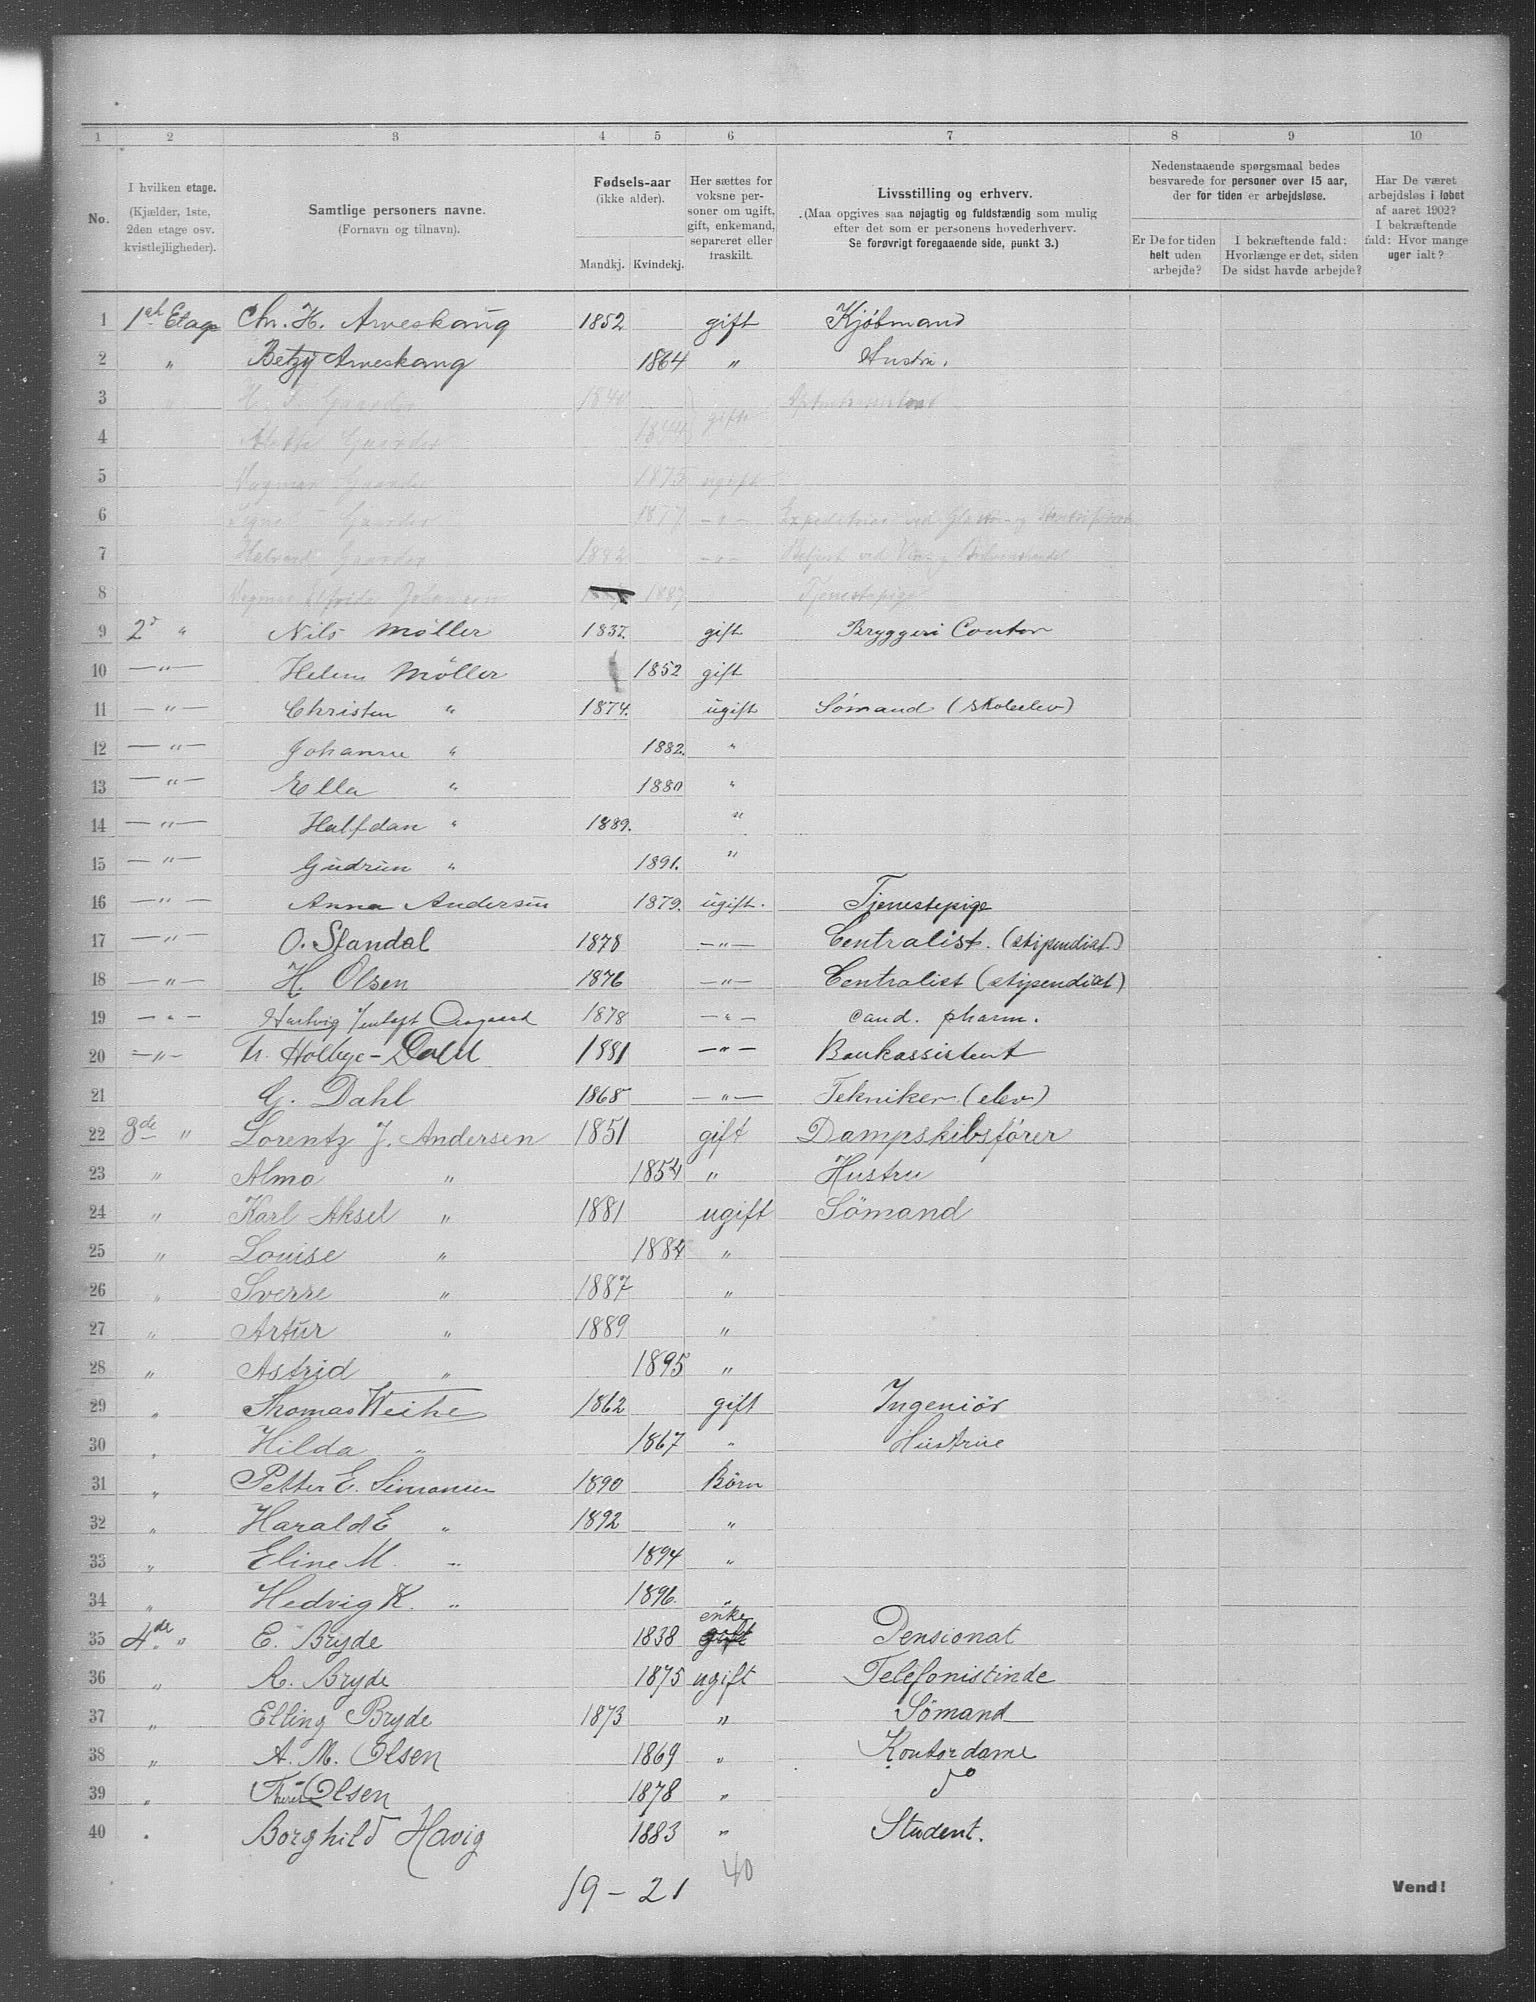 1 2 3 4 5 6 7 8 9 10
No.
I hvilken etage.
(Kjælder, 1ste,
2den etage osv.
kvistlejligheder).
Samtlige personers navne.
(Fornavn og tilnavn).
Fødsels-aar
(ikke alder).
Mandkj. Kvindekj.
Her sættes for
voksne per-
soner om ugift,
gift, enkemand,
separeret eller
fraskilt.
Livsstilling og erhverv.
(Maa opgives saa nøjagtig og fuldstændig som mulig
efter det som er personens hovederhverv.
Se forøvrigt foregaaende side, punkt 3.)
Nedenstaaende spørgsmaal bedes
besvarede for personer over 15 aar,
der for tiden er arbejdsløse.
Er De for tiden
helt uden
arbejde?
I bekræftende fald:
Hvorlænge er det, siden
De sidst havde arbejde?
Har De været
arbejdsløs i løbet
af aaret 1902?
I bekræftende
fald: Hvor mange
uger ialt?
1 1st Etage Chr. H. Arveskaug 1852 gift Kjøbmand
2 " Betzy Arveskaug 1864 " Hustru.
3 " H. Gaarder 1840 gift
4 Gaarder 1844
5 Dagmar Gaarder 1875 ugift
6 Signe Gaarder 1877 -"- ved Glas
7 Halvard Gaarder 1882 -"- Betjent ved Vin
8 Johansen 1887 Tjenestepige
9 2d " Nils Møller 1837. gift Bryggeri Contor
10 -"- Helene Møller 1852 gift
11 -"- Christen " 1874. ugift Sømand (skoleelev)
12 -"- Johanne " 1882. "
13 -"- Ella " 1880 "
14 -"- Halfdan " 1889. "
15 -"- Gudrun " 1891. "
16 -"- Anna Andersen 1879. ugift. Tjenestepige
17 -"- O. Standal 1878 -"- Centralist. (stipendiat)
18 -"- H. Olsen 1876 -"- Centralist (stipendiat)
19 -"- Hartvig Aagaard 1878 -"- cand. pharm.
20 -"- Holbye-Dahl 1881 -"- Bankassistent
21 G. Dahl 1868 -"- Tekniker (elev)
22 3de " Lorentz J. Andersen 1851 gift Dampskibsfører
23 " Alma " 1854 " Hustru
24 " Karl Aksel " 1881 ugift Sömand
25 " Louise " 1884 "
26 " Sverre " 1887 "
27 " Artur " 1889 "
28 " Astrid " 1895 "
29 " Thomas 1862 gift Ingeniör
30 " Hilda " 1867 " Hustrue
31 " Petter E. Simonsen 1890 Børn
32 " Harald E " 1892 "
33 " Eline M. " 1894 "
34 " Hedvig K. " 1896. "
enke
35 4de " E. Bryde 1838 gift Pensionat
36 " R. Bryde 1875 ugift Telefonistinde
37 " Elling Bryde 1873 " Sömand
38 " A. M. Olsen 1869 " Kontordame
39 " Olsen 1878 " do
40 " Borghild Havig 1883 " Student.
19 - 21 40
Vend!